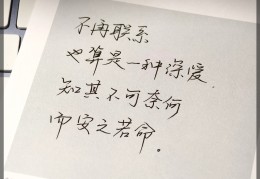 不再联系
也算是一种深爱.
知其不可奈何
而安之若命.